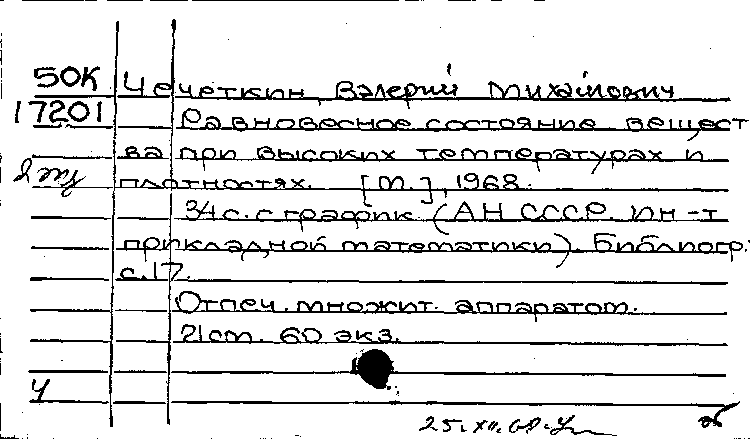 50К Чечеткин, Валерий Михайлович
17201 Равновесное состояние вещест
ва при высоких температурах и
плотностях. [М.], 1968.
34 с. с график. (АН СССР. Ин-т
прикладной математики). Библиогр.:
с. 17.
Отпеч. множит. аппаратом.
21 см. 60 экз.
Ч
25.XII.68.